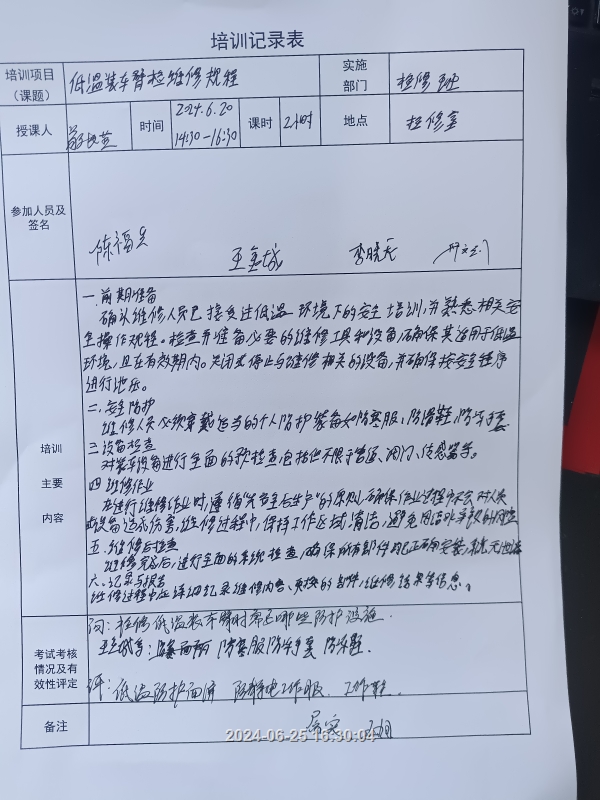 培训记录表
培训项目（课题） 低温装车臂检维修规程 实施部门 检修班
授课人 时间 2024.6.20 14:30-16:30 课时 2小时 地点 检修室
参加人员及签名
陈福 王金城 李晓天
培训主要内容
一.前期准备
确认维修人员已接受过低温环境下的安全培训,并熟悉相关安
全操作规程。检查并准备必要的维修工具和设备,确保其适用于低温
环境,且在有效期内。关闭或停止与维修相关的设备,并确保按安全程序
进行
二.安全防护
维修人员必须穿戴适当的个人防护装备如防寒服,防滑鞋,防冻手套
三.设备检查
对装车设备进行全面的预检查,包括但不限于管道、阀门、传感器等。
四.维修作业
在进行维修作业时,遵循"先安全后生产"的原则,确保作业过程中不会对人员
或设备造成伤害,维修过程中,保持工作区域清洁,避免
五.维修后检查
维修完后,进行全面的系统检查,确保所有部件均已正确安装,系统无泄漏
六.记录与报告
维修过程中应详细记录维修内容、更换的备件,维修结果等信息。
考试考核情况及有效性评定
问:检修低温装车臂时需要哪些防护设施
防寒服 防冻手套
评:低温防护面屏 防静电工作服、工作鞋.
备注
2024-06-25 16:30:04